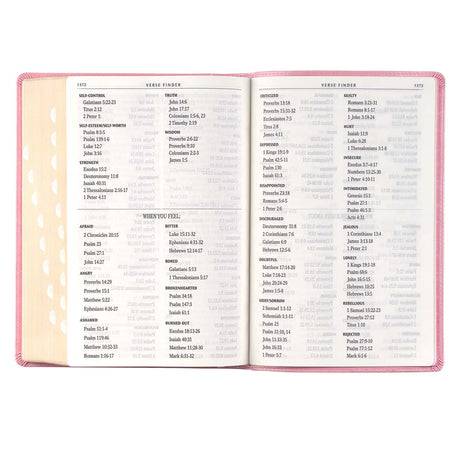 1372
VERSE FINDER
SELF-CONTROL
Galatians 5:22-23
Titus 2:12
2 Peter 1:
SELF-ESTEEM/SELF WORTH
Psalm 8:3-5
Psalm 139:1-4
Luke 12:7
John 3:16
STRENGTH
Exodus 15:2
Deuteronomy 11:8
Isaiah 40:31
2 Thessalonians 2:16-17
1 Peter 4:11
TRUTH
John 14:6
John 17:17
Colossians 1:5-6, 23
2 Timothy 2:19
WISDOM
Proverbs 2:6-22
Proverbs 9:10
Colossians 2:2-3
James 1:5
WHEN YOU FEEL:
AFRAID
2 Chronicles 20:15
Psalm 23
Psalm 27:1
John 14:27
ANGRY
Proverbs 14:29
Proverbs 15:1
Matthew 5:22
Ephesians 4:26-27
ASHAMED
Psalm 51:1-4
Psalm 119:46
Matthew 10:32-33
Romans 1:16-17
BITTER
Luke 15:11-32
Ephesians 4:31-32
Hebrews 12:14-17
BORED
Galatians 5:13
1 Thessalonians 5:17
BROKENHEARTED
Psalm 34:18
Psalm 147:3
Isaiah 61:1
BURNED OUT
Exodus 18:13-26
Isaiah 40:31
Matthew 11:28-30
Mark 6:31-32
VERSE FINDER
1373
CRITICIZED
Proverbs 13:18
Proverbs 15:31-32
Ecclesiastes 7:5
Titus 2:8
James 4:11
DEPRESSED
1 Kings 19:1-9
Psalm 42:5-11
Psalm 130
Isaiah 61:1-3
DISAPPOINTED
Psalm 23
Romans 5:4-5
1 Peter 2:6
DISCOURAGED
Deuteronomy 31:8
2 Corinthians 7:6
Galatians 6:9
Hebrews 12:5-6
DOUBTFUL
Matthew 17:14-20
Luke 17:6
John 20:24-29
James 1:5-8
GRIEF/SORROW
2 Samuel 1:1-12
Nehemiah 1:1-11
Psalm 23
Psalm 31:10, 14
John 11:33-35
John 16:33
1 Peter 5:7
GUILTY
Romans 3:21-31
Romans 8:1
1 John 3:18-24
HURT
Isaiah 11:9
Luke 6:28
1 Thessalonians 3:1-8
INSECURE
Exodus 3:7-4:17
Numbers 13:25-30
1 Peter 4:10-11
INTIMIDATED
Genesis 15:1
Psalm 27:1
Psalm 46:1-3
Acts 4:31
JEALOUS
1 Corinthians 13:4
James 3:13-18
1 Peter 2:1
LONELY
1 Kings 19:1-18
Psalm 68:6
John 16:5-15
Hebrews 10:25
Hebrews 13:5
REBELLIOUS
1 Samuel 15:22-23
Proverbs 27:12
Titus 1:10
REJECTED
Psalm 27:9-10
Psalm 77:1-12
Mark 6:1-6